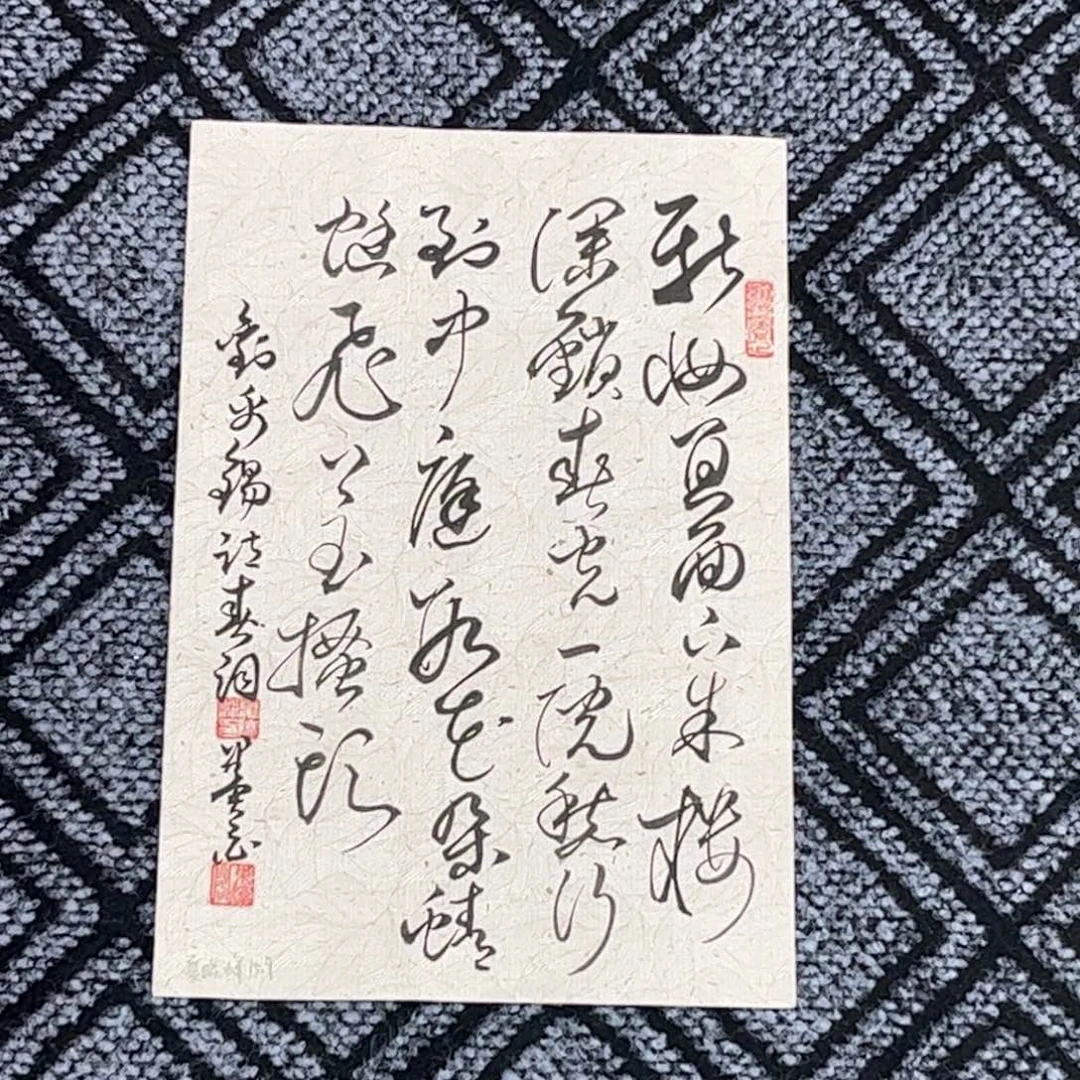 新妝宜面下朱樓
深鎖春光一院愁行
到中庭數花朵蜻
蜓飛上玉搔頭
劉禹錫詩春詞